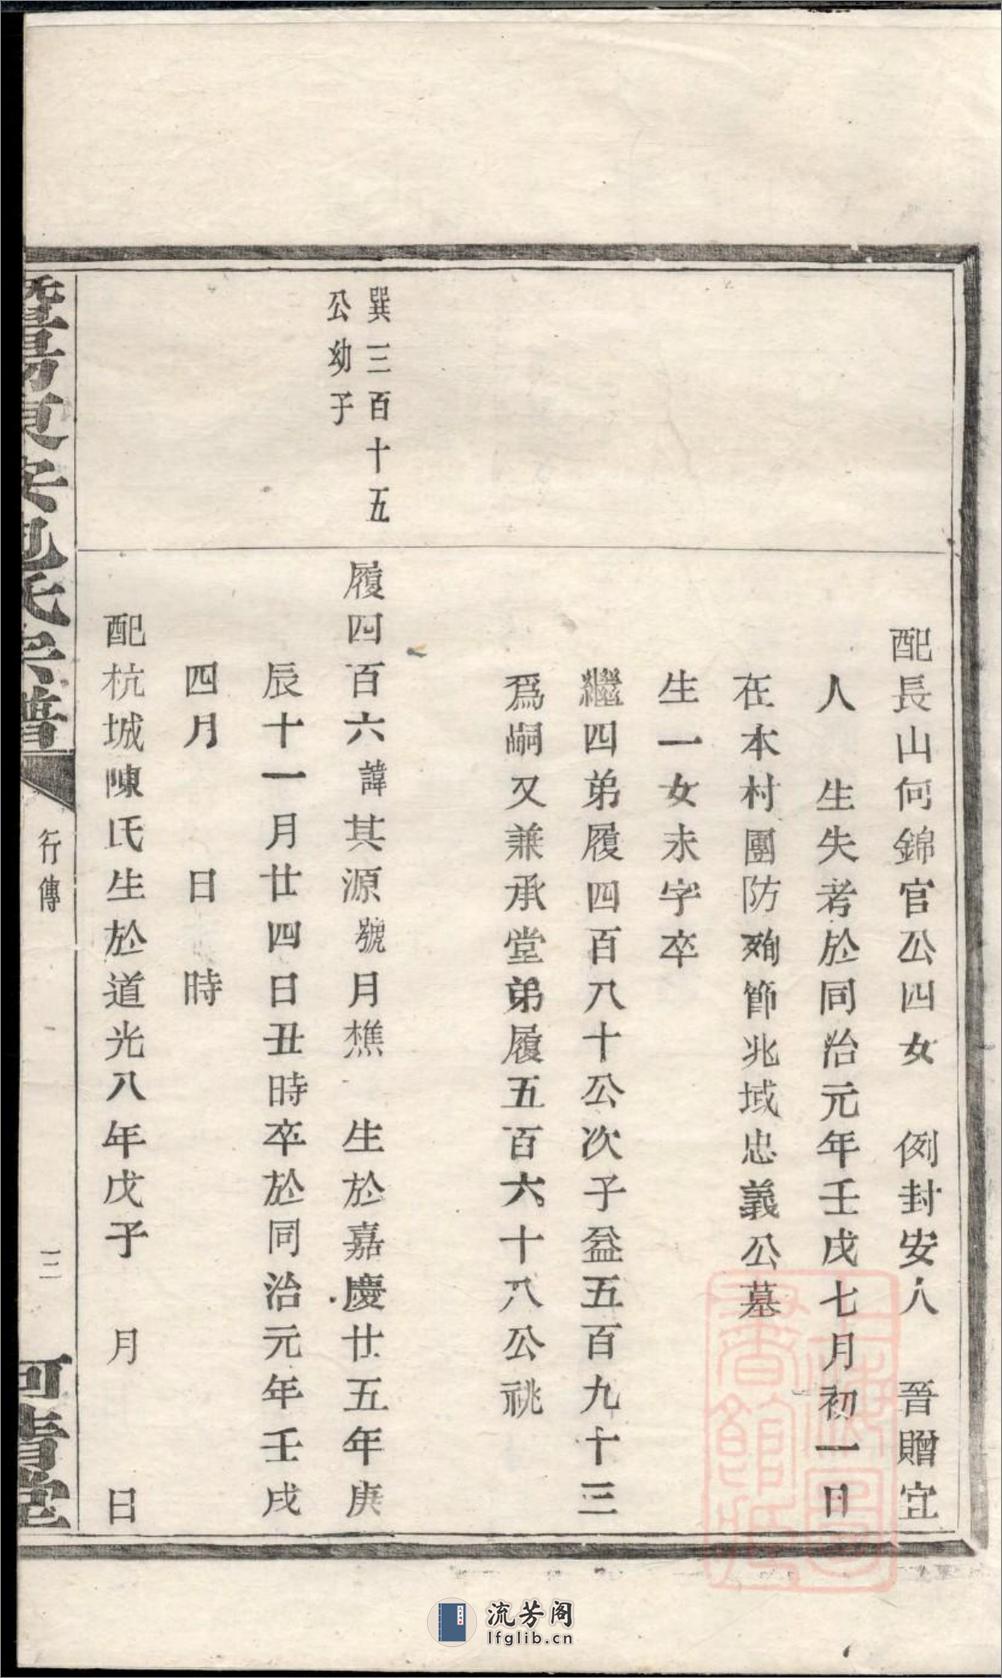 配長山何錦官公四女　例封安人　晉贈宜
人　生失考於同治元年壬戌七月初一日
在本村團防殉節兆域忠義公墓
生一女未字卒
繼四弟履四百八十公次子益五百九十三
爲嗣又兼承堂弟履五百六十八公祧
巽三百十五
公幼子
履四百六諱其源號月樵　生於嘉慶廿五年庚
辰十一月廿四日丑時卒於同治元年壬戌
四月　　日　時
配杭城陳氏生於道光八年戊子　月　　日
暨陽東安包氏宗譜
行傳
三
河清堂
上海圖
書館藏
流芳阁
lfglib.cn